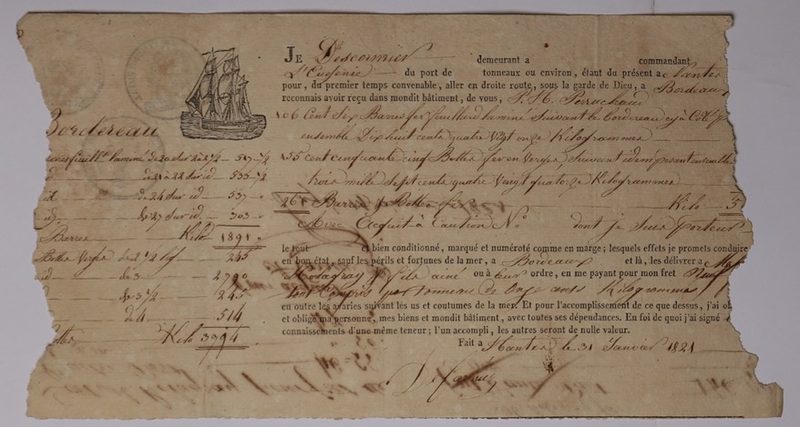 JE Descormier demeurant a commandant
L'Eugénie du port de tonneaux ou environ, étant du présent a Nantes
pour, du premier temps convenable, aller en droite route, sous la garde de Dieu, a Bordeaux
reconnais avoir reçu dans mondit bâtiment, de vous,
Cent Six Barres fer feuillard laminé Suivant le bordereau cy à Côté
ensemble Dix huit cents quatre Vingt onze Kilogrammes
155 cent cinquante cinq Bottes fer en Verges Suivant idem pesant ensemble
trois mille Sept cents quatre Vingt quatorze Kilogrammes
261 Barres & Bottes fer Kilo 5
Avec Acquit à Caution N° dont je Suis porteur
le tout et bien conditionné, marqué et numéroté comme en marge; lesquels effets je promets conduire
en bon état, sauf les périls et fortunes de la mer, a Bordeaux et là, les délivrer a
fils ainé ou à leur ordre, en me payant pour mon fret
tout Compris par tonneau de Kilogrammes
en outre les avaries suivant les us et coutumes de la mer. Et pour l'accomplissement de ce que dessus, j'ai
et obligé ma personne, mes biens et mondit bâtiment, avec toutes ses dépendances. En foi de quoi j'ai signé
connaissements d'une même teneur; l'un accompli, les autres seront de nulle valeur.
Fait a Nantes le 31 Janvier 1821
Bordereau
laminé de 20 sur 2 1/2
de 21 à 22 sur id
id de 24 sur id 537
id de 27 sur id 303
Barres Kilo 1891
Bottes Verges de 2 1/2 lig 245
id de 3 2790
de 3 1/2 245
de 4 514
Kilo 3794